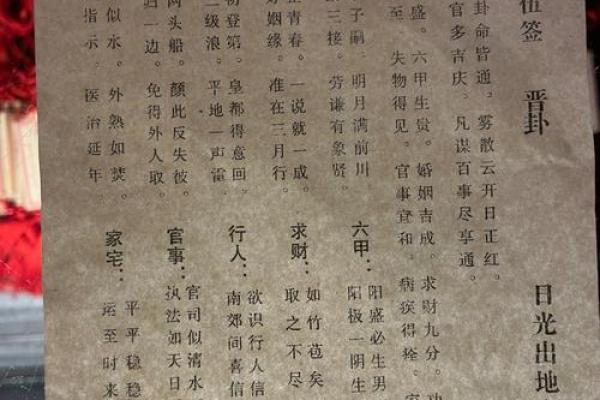 签 晋卦 日光出地
卦命皆通。雾散云开日正红。
官多吉庆。凡谋百事尽享通。
盛。六甲生贵。婚姻吉成。求财九分。功
至。失物得见。官事宜和。病痪得痊。
子嗣 明月满前川
三接。劳谦有象贤
六甲：
阳盛必生男
阳极一阴生
青春。一说就一成。
好姻缘。准在三月行。
求财：
如竹苞矣
取之不尽
初登第。皇都得意回。
级浪。平地一声雷
行人：
欲识行人信
南郊问喜信
两头船。颜此反失彼。
归一边。免得外人取。
官事：
官司似清水
执法如天日
似水。外熟如焚。
指示。医治延年。
家宅：
平平稳稳
运至时来